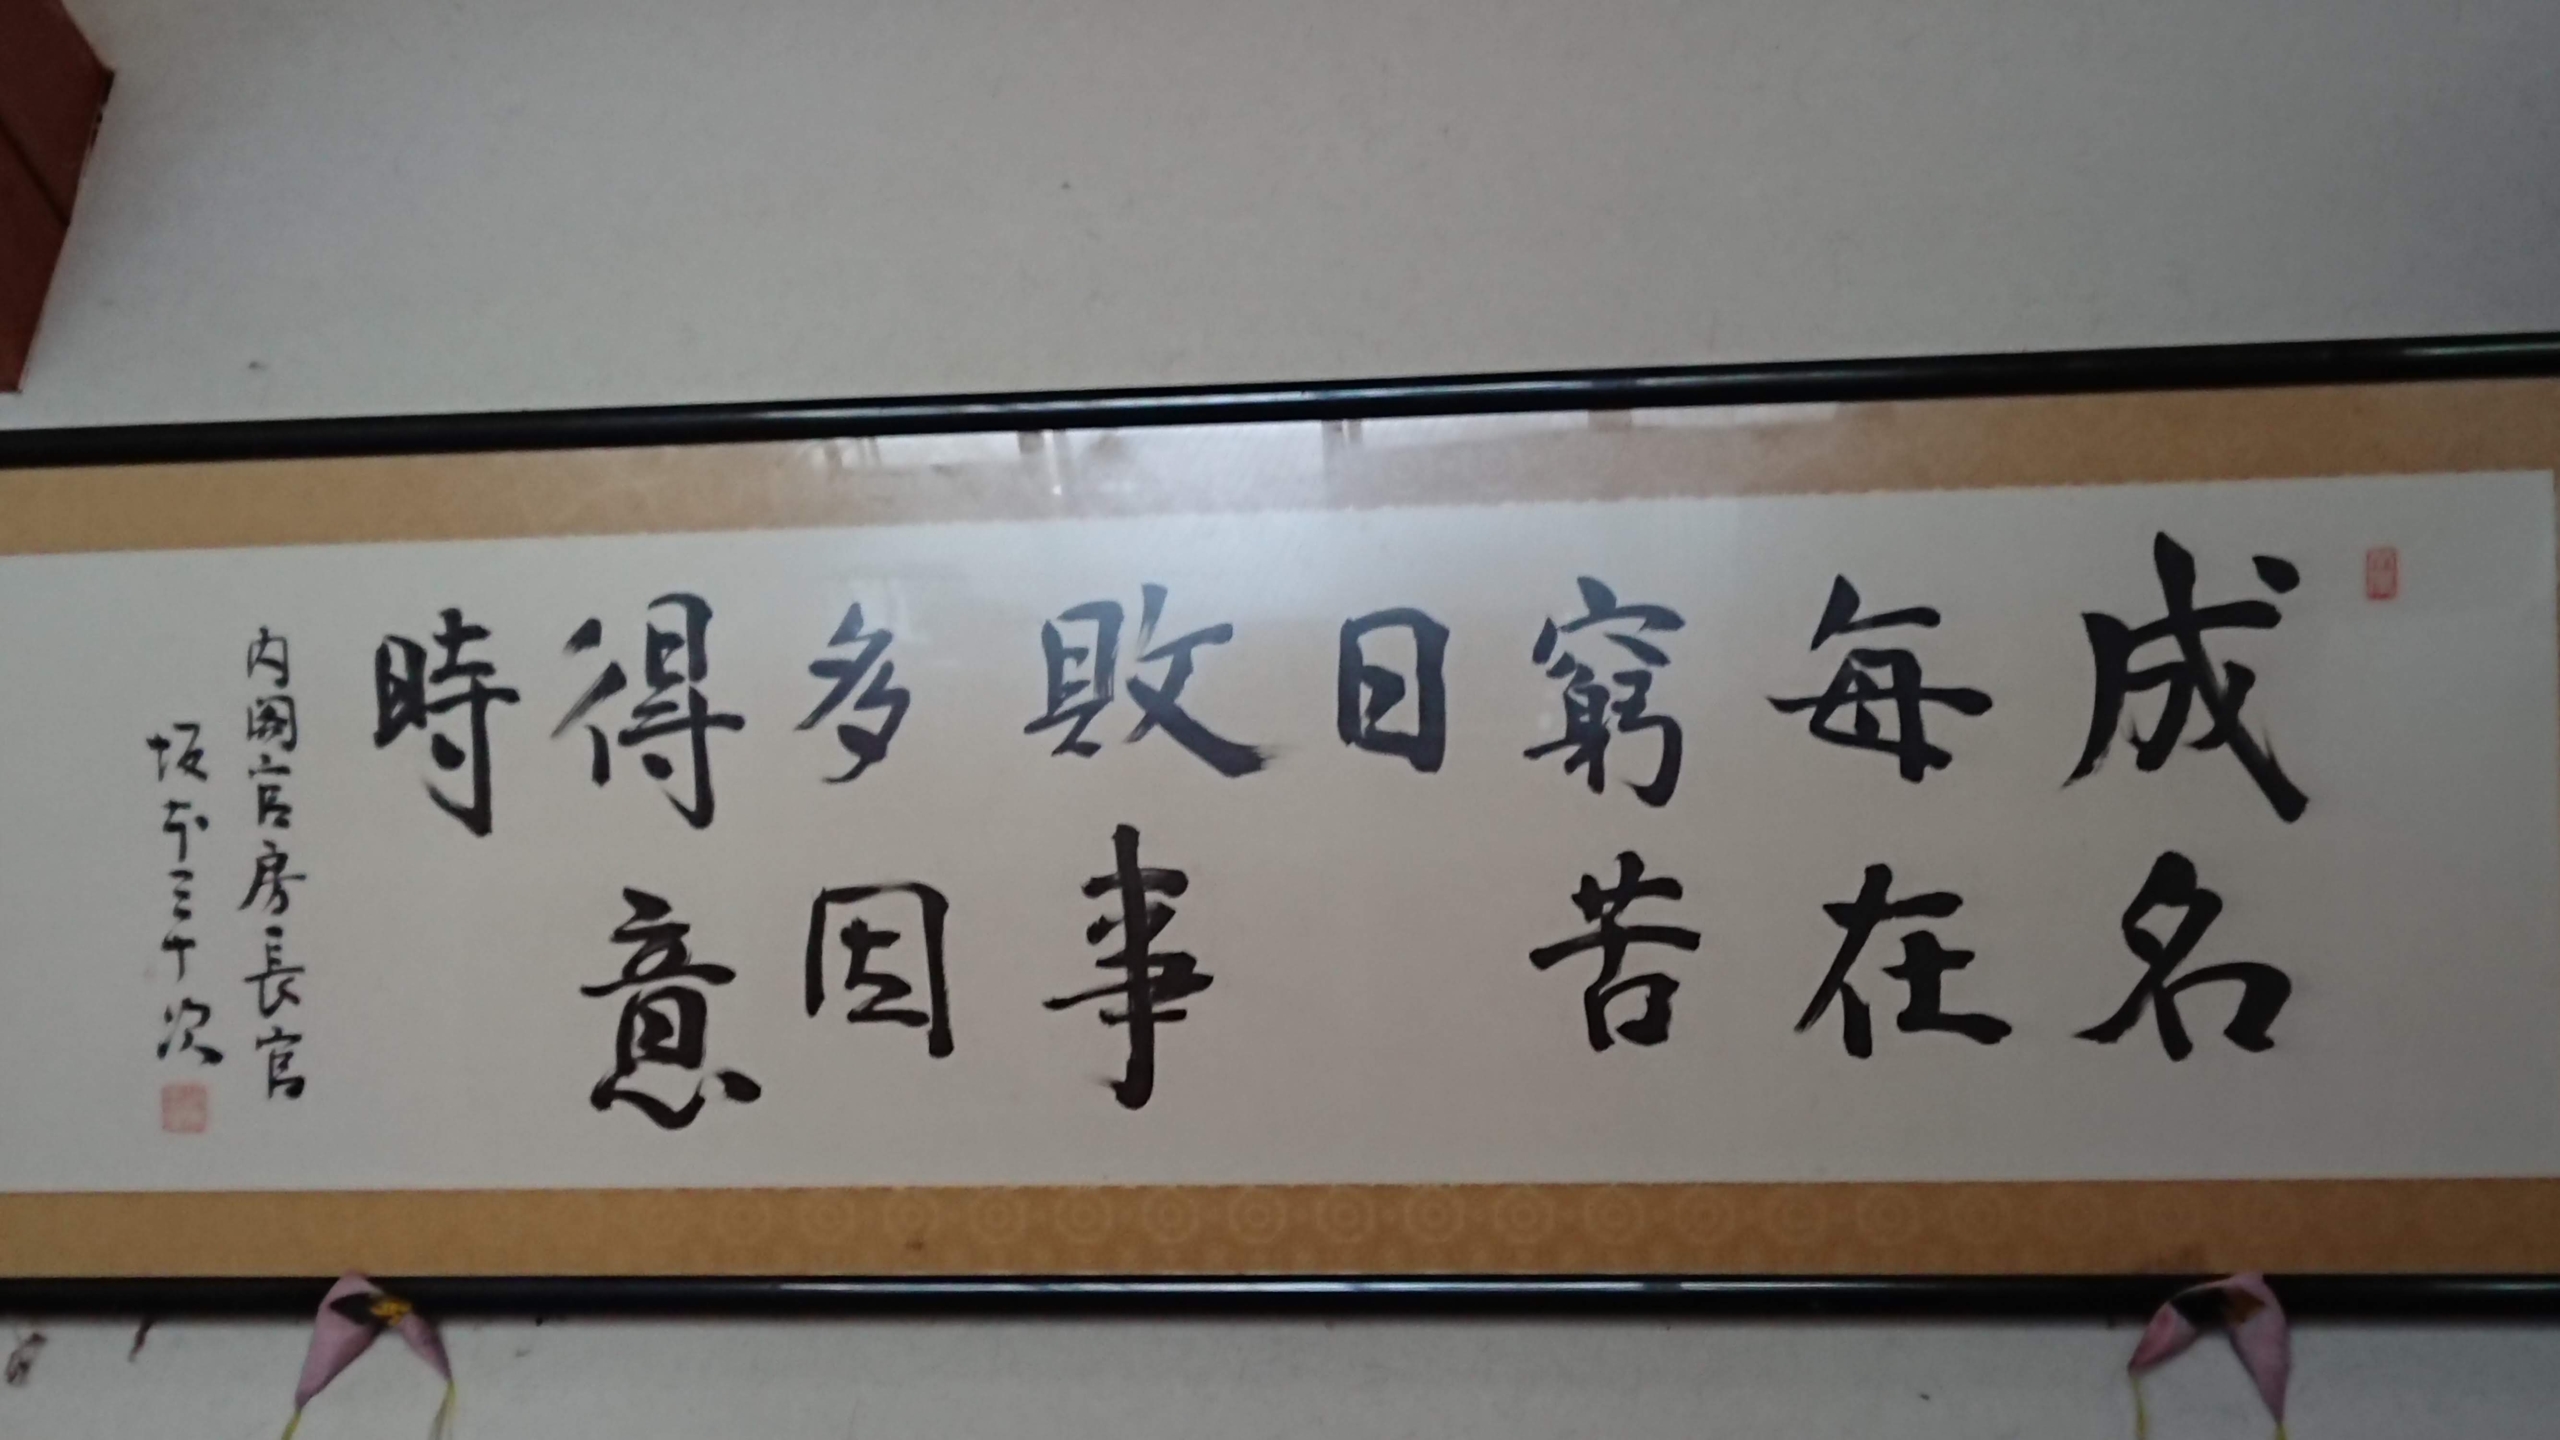 成名
毎在
窮苦
日
敗事
多因
得意
時
内閣官房長官
坂本三十次